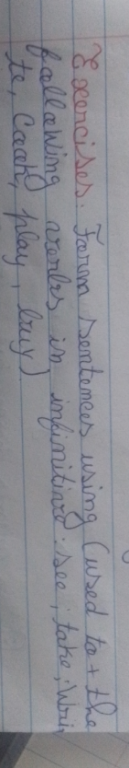 Exercises. Form sentences using (used to + the
following verbs in infinitive: see, take, Wri
te, Cook, play, buy)